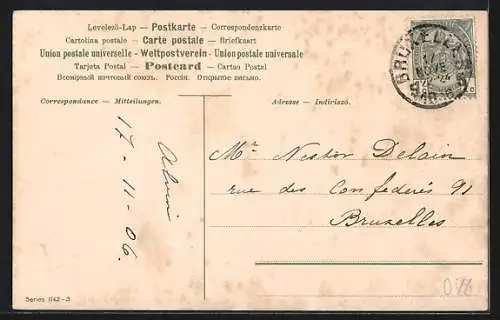 Levelező-Lap — Postkarte — Correspondenzkarte
Cartolina postale — Carte postale — Briefkaart
Union postale universelle - Weltpostverein - Unione postale universale
Tarjeta Postal — Postcard — Cartao Postel
Всемірный почтовый союзъ. Россія. Открытое письмо.
Correspondance — Mitteilungen.
Adresse — Indirizzó.
BRUXELLES
17 - 11 - 06.
Mr Nestor Delain
rue des Confederés 91
Bruxelles
Series 1142-3